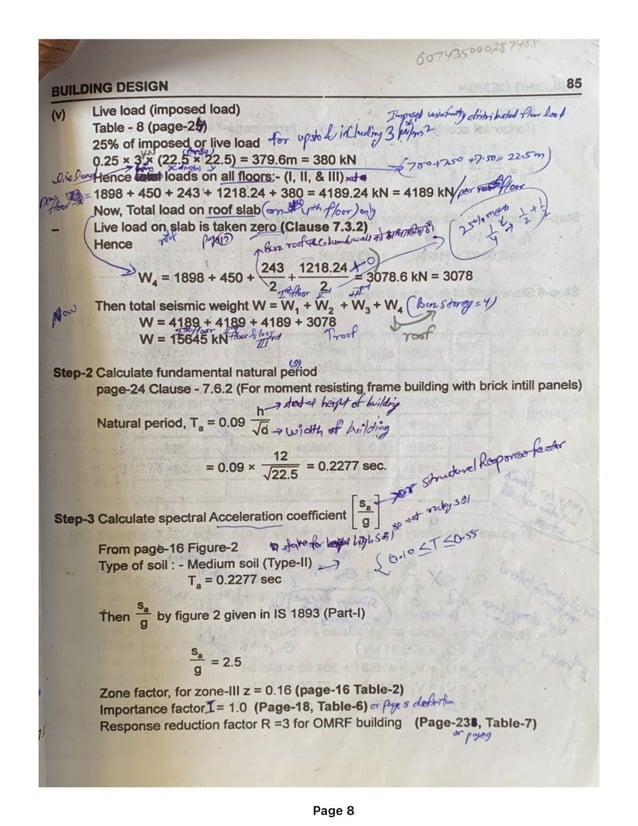 607435000287488
BUILDING DESIGN 85
(v) Live load (imposed load)
Table - 8 (page-25)
Imposed uniformly distributed floor load
25% of imposed or live load for upsto & including 3 kN/m²
0.25 × 3 × (22.5 × 22.5) = 379.6m = 380 kN
(7.50+7.50+7.50= 22.5m)
Hence loads on all floors:- (I, II, & III)
= 1898 + 450 + 243 + 1218.24 + 380 = 4189.24 kN = 4189 kN/per floor
Now, Total load on roof slab (on 4th floor) only
– Live load on slab is taken zero (Clause 7.3.2)
roof
Hence
W4 = 1898 + 450 + 243/2 + 1218.24/2 + 0 = 3078.6 kN = 3078
Now Then total seismic weight W = W1 + W2 + W3 + W4
W = 4189 + 4189 + 4189 + 3078
roof
W = 15645 kN
Step-2 Calculate fundamental natural period
page-24 Clause - 7.6.2 (For moment resisting frame building with brick intill panels)
Natural period, Ta = 0.09 h/√d
→ total height of building
→ width of building
= 0.09 × 12/√22.5 = 0.2277 sec.
Step-3 Calculate spectral Acceleration coefficient [sa/g] → or structural Response factor
From page-16 Figure-2
Type of soil : - Medium soil (Type-II) → {0.10 ≤ T ≤ 0.55
Ta = 0.2277 sec
Then sa/g by figure 2 given in IS 1893 (Part-I)
sa/g = 2.5
Zone factor, for zone-III z = 0.16 (page-16 Table-2)
Importance factor I = 1.0 (Page-18, Table-6) or Page 8 definition
Response reduction factor R =3 for OMRF building (Page-23, Table-7)
Page 8